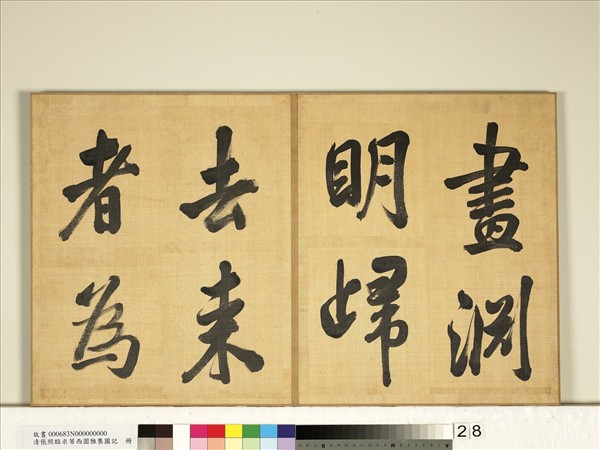 畫淵
明歸
去来
者為
故書 000683N000000000
清張照臨米芾西園雅集圖記 冊
28